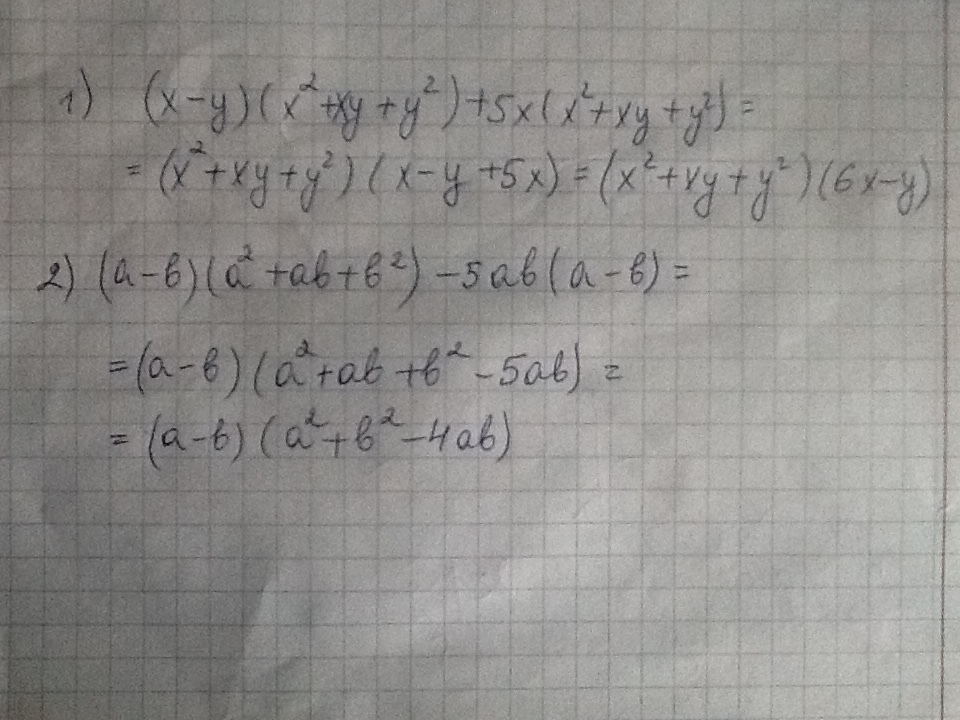 1) (x-y)(x²+xy+y²)+5x(x²+xy+y²)=
=(x²+xy+y²)(x-y+5x)=(x²+xy+y²)(6x-y)
2) (a-в)(a²+aв+в²)-5aв(a-в)=
=(a-в)(a²+aв+в²-5aв)=
=(a-в)(a²+в²-4aв)